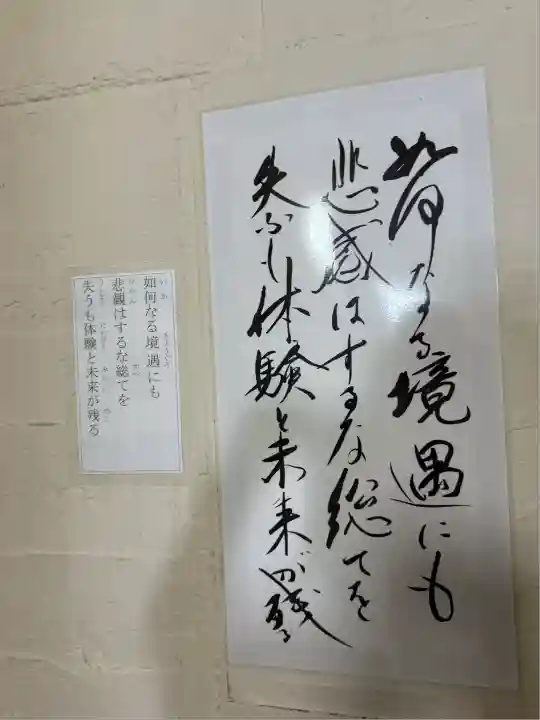 如何なる境遇にも
悲感はするな総てを
失ふも体験と未来が残る
如何なる境遇にも
悲観はするな総てを
失うも体験と未来が残る